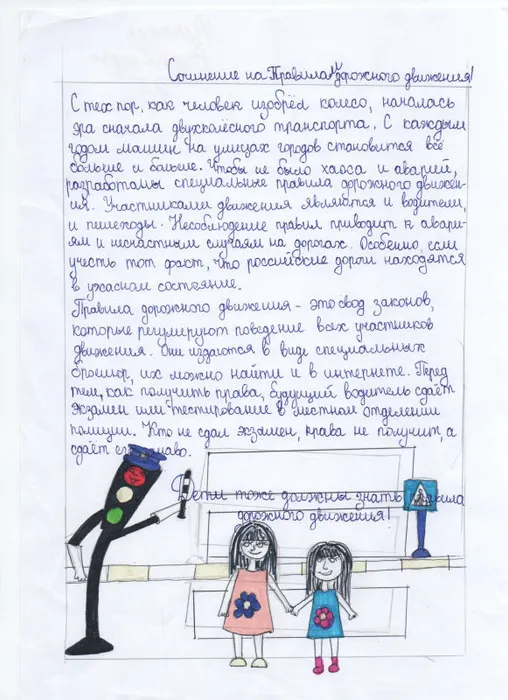 Сочинение на Правила дорожного движения!
С тех пор, как человек изобрёл колесо, началась
эра сначала двухколёсного транспорта. С каждым
годом машин на улицах городов становится всё
больше и больше. Чтобы не было хаоса и аварий,
разработаны специальные правила дорожного движен-
ия. Участниками движения являются и водители,
и пешеходы. Несоблюдение правил приводит к авари-
ям и несчастным случаям на дорогах. Особенно, если
учесть тот факт, что российские дороги находятся
в ужасном состояние.
Правила дорожного движения - это свод законов,
которые регулируют поведение всех участников
движения. Они издаются в виде специальных
брошюр, их можно найти и в интернете. Перед
тем, как получить права, будущий водитель сдаёт
экзамен или тестирование в местном отделении
полиции. Кто не сдал экзамен, права не получит, а
сдаёт его
Дети тоже должны знать правила
дорожного движения!